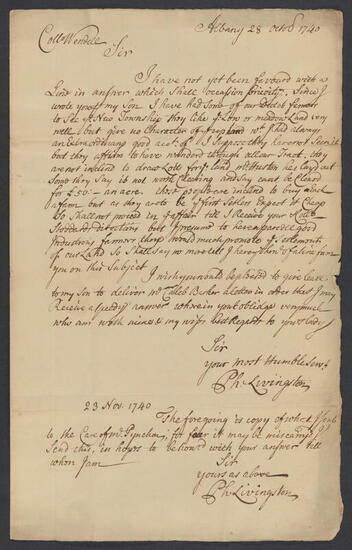 Coll Wendell
Albany 28 Octob 1740
Sir
I have not yet been favoured with a
Line in answer which Shall occasion brevity, Since I
wrote you p my Son I have had Some of our Dutch farmers
to See ye New Township they like ye Low or meadow Land very
well but give no Character of ye upland wch I had always
an Extraordinary good acct. of
but they affirm to have wandered through all our Tract, they
are not inclined to draw Lotts for ye Land
Some they Say is not worth clearing and Say cant be Cleard
for £50:- an acre. Most people are inclined to buy
a farm but as they are to be ye first Setlers Expect it Cheap
So Shall not proceed in ye affair till I Receive your & Coll
Stoddard directions but I presume to have a parcle good
Industrious farmers there would much promote ye Setlements
of our Land So Shall say no more till I hereof from
you on this Subject
I wish you would be pleased to give leave
to my Son to deliver Mr Caleb Becker a Letter in order that I may
Receive a Speedy answer wherein you'l oblidge very much
who am with mine & my wife's best Regards to your Lady
Sir
your most Humble Serv
Ph Livingston
23 Nov. 1740
The foregoing is copy of what I Sent
to the Care of Mr Pynchon, for fear it may be miscarry'd I
Send this, in hopes to be honor'd with your answer till
when I am
Sir
yours as above
Ph Livingston